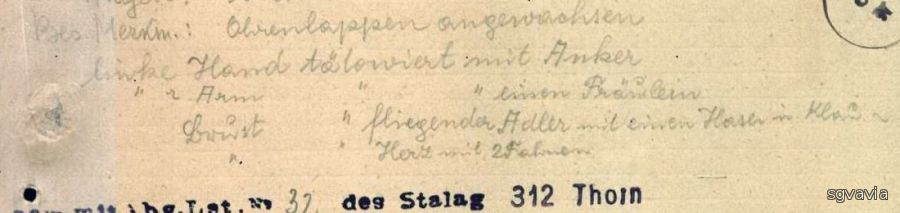 Bes. Merkm.: Ohrenlappen angewachsen
linke Hand tätowiert mit Anker
" " Arm " " einen Fräulein
Brust " fliegender Adler mit einen Hasen in Klau
" " Herz mit 2 Fahnen
mit Lst. № 32 des Stalag 312 Thorn
sgvavia